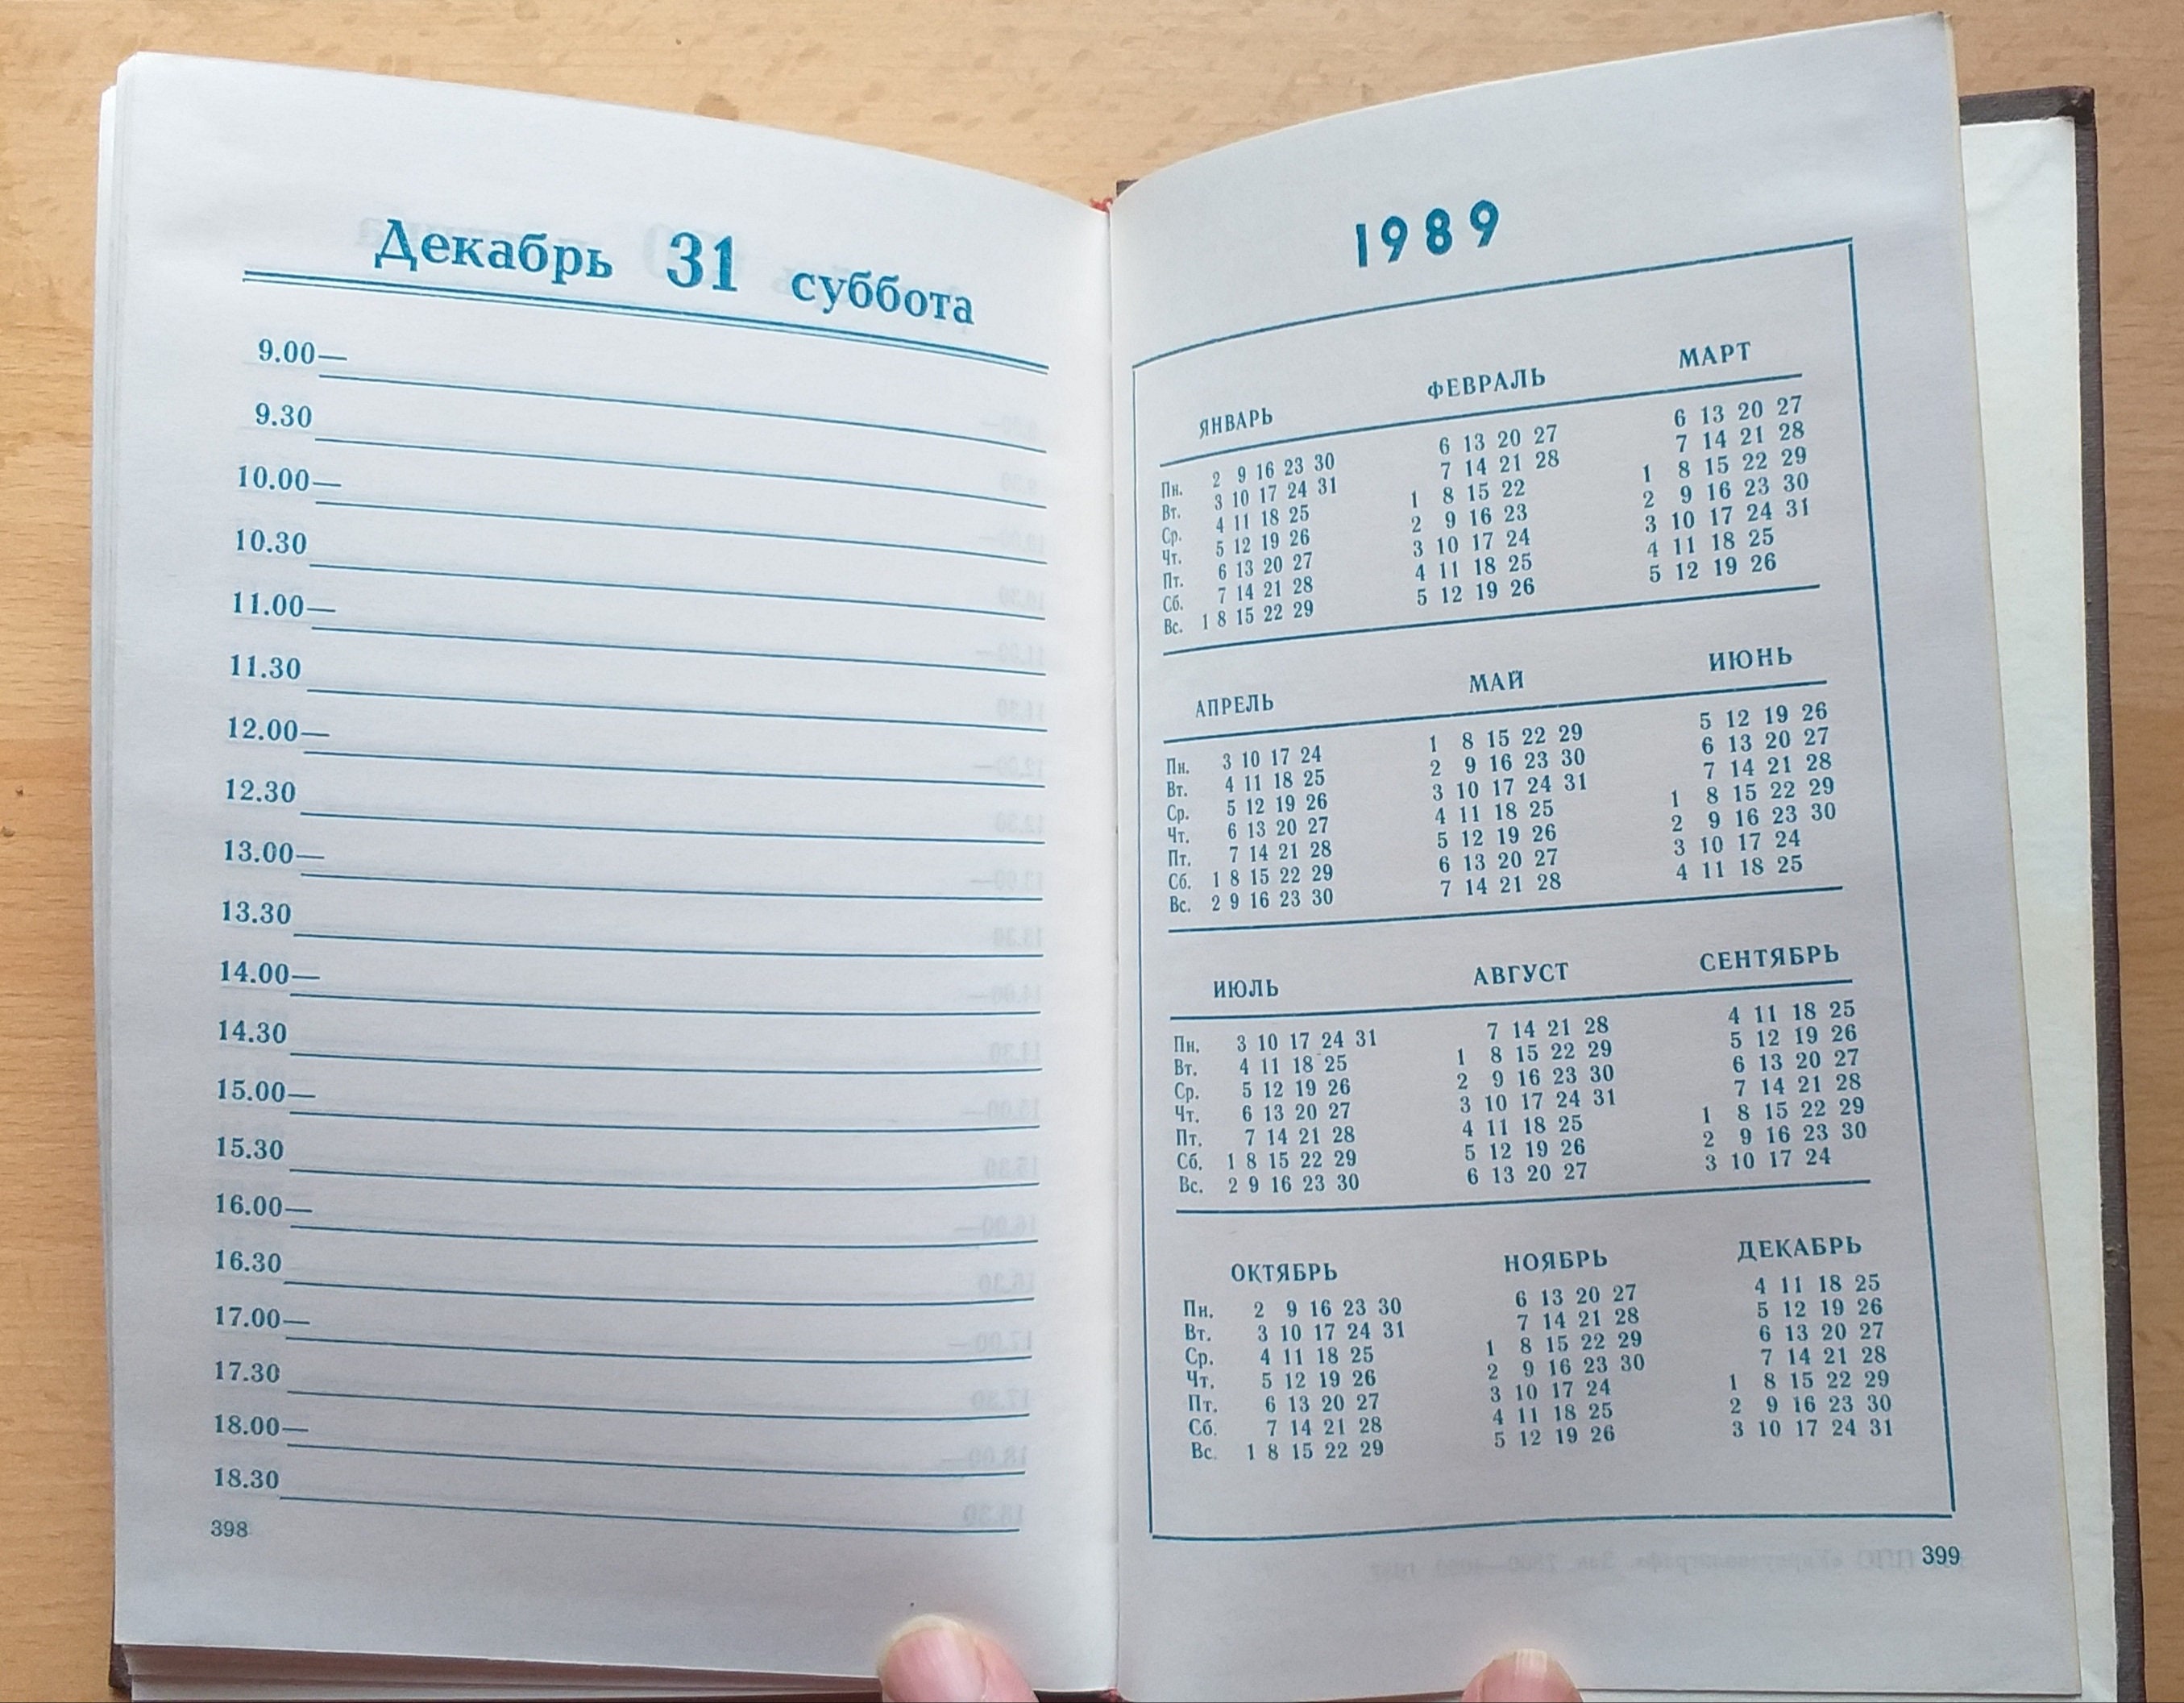 Декабрь 31 суббота
9.00—
9.30
10.00—
10.30
11.00—
11.30
12.00—
12.30
13.00—
13.30
14.00—
14.30
15.00—
15.30
16.00—
16.30
17.00—
17.30
18.00—
18.30
398
1989
ЯНВАРЬ ФЕВРАЛЬ МАРТ
Пн. 2 9 16 23 30 6 13 20 27 6 13 20 27
Вт. 3 10 17 24 31 7 14 21 28 7 14 21 28
Ср. 4 11 18 25 1 8 15 22 1 8 15 22 29
Чт. 5 12 19 26 2 9 16 23 2 9 16 23 30
Пт. 6 13 20 27 3 10 17 24 3 10 17 24 31
Сб. 7 14 21 28 4 11 18 25 4 11 18 25
Вс. 1 8 15 22 29 5 12 19 26 5 12 19 26
АПРЕЛЬ МАЙ ИЮНЬ
Пн. 3 10 17 24 1 8 15 22 29 5 12 19 26
Вт. 4 11 18 25 2 9 16 23 30 6 13 20 27
Ср. 5 12 19 26 3 10 17 24 31 7 14 21 28
Чт. 6 13 20 27 4 11 18 25 1 8 15 22 29
Пт. 7 14 21 28 5 12 19 26 2 9 16 23 30
Сб. 1 8 15 22 29 6 13 20 27 3 10 17 24
Вс. 2 9 16 23 30 7 14 21 28 4 11 18 25
ИЮЛЬ АВГУСТ СЕНТЯБРЬ
Пн. 3 10 17 24 31 7 14 21 28 4 11 18 25
Вт. 4 11 18 25 1 8 15 22 29 5 12 19 26
Ср. 5 12 19 26 2 9 16 23 30 6 13 20 27
Чт. 6 13 20 27 3 10 17 24 31 7 14 21 28
Пт. 7 14 21 28 4 11 18 25 1 8 15 22 29
Сб. 1 8 15 22 29 5 12 19 26 2 9 16 23 30
Вс. 2 9 16 23 30 6 13 20 27 3 10 17 24
ОКТЯБРЬ НОЯБРЬ ДЕКАБРЬ
Пн. 2 9 16 23 30 6 13 20 27 4 11 18 25
Вт. 3 10 17 24 31 7 14 21 28 5 12 19 26
Ср. 4 11 18 25 1 8 15 22 29 6 13 20 27
Чт. 5 12 19 26 2 9 16 23 30 7 14 21 28
Пт. 6 13 20 27 3 10 17 24 1 8 15 22 29
Сб. 7 14 21 28 4 11 18 25 2 9 16 23 30
Вс. 1 8 15 22 29 5 12 19 26 3 10 17 24 31
399